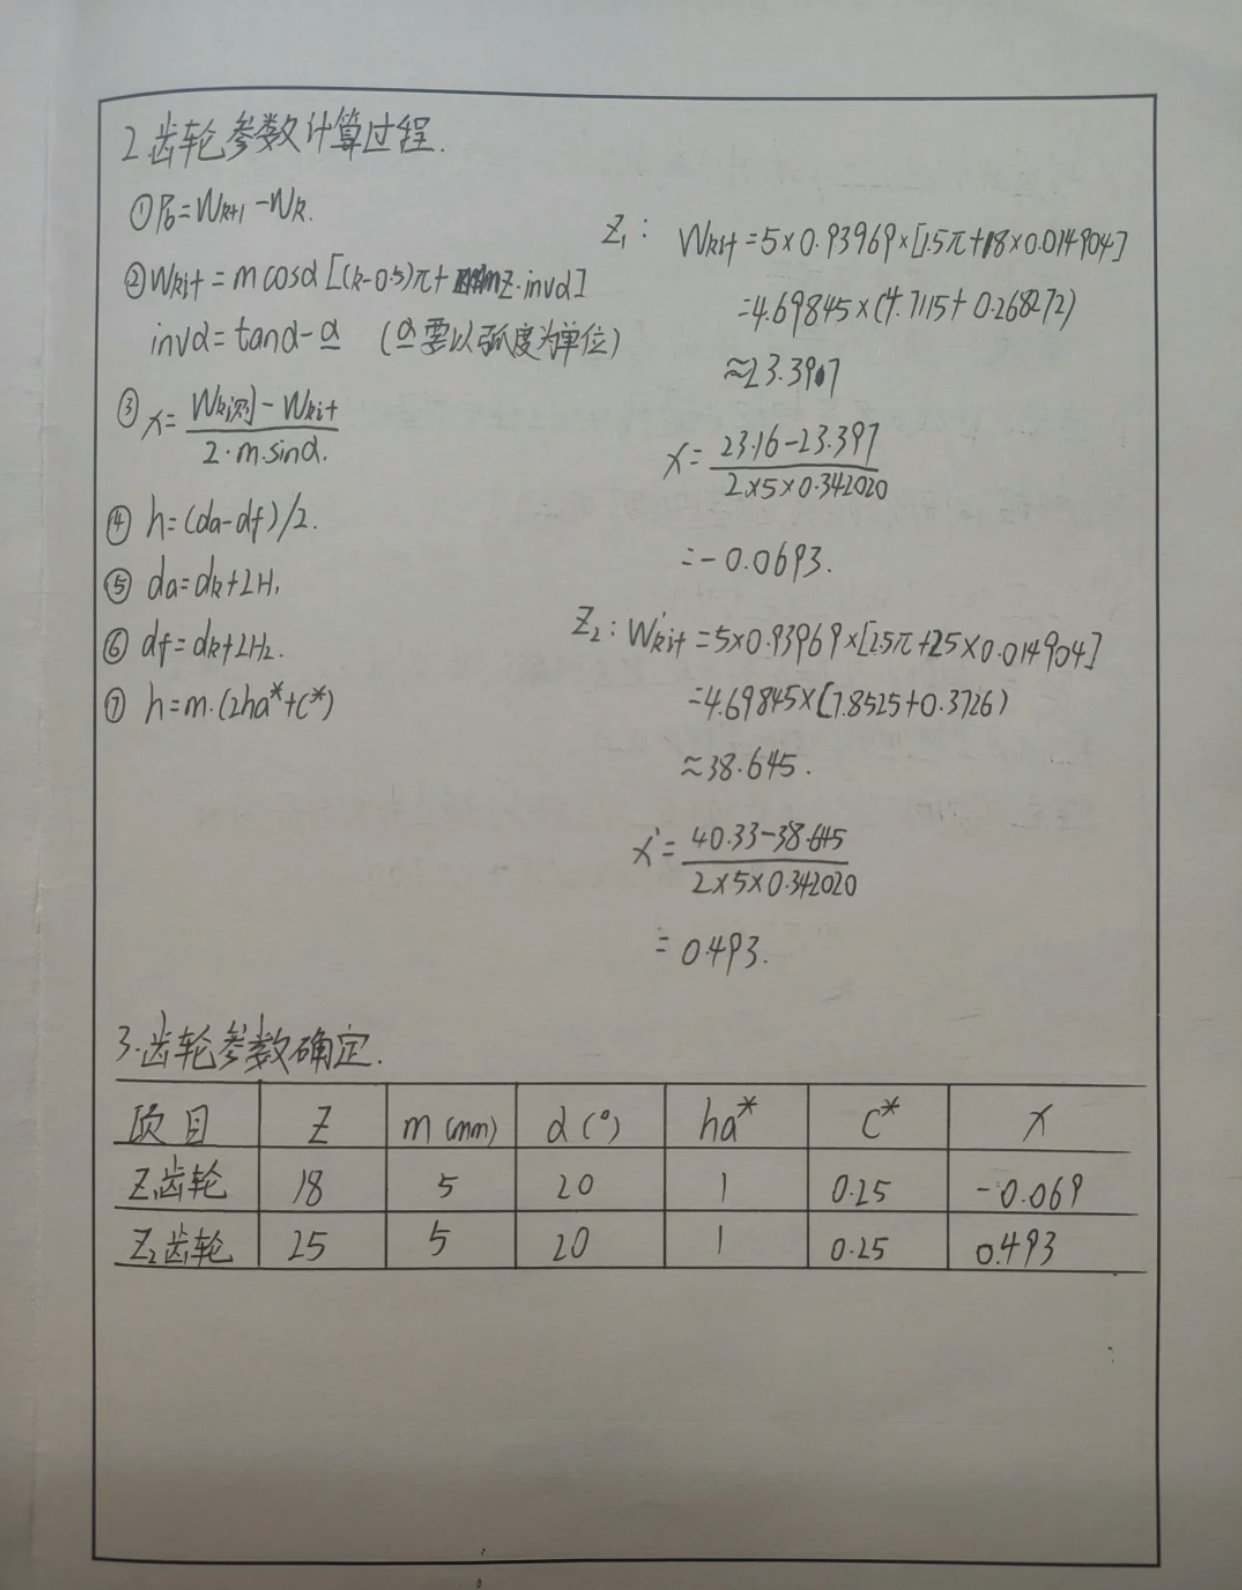 2.齿轮参数计算过程.
①Pb=Wk+1-Wk.
②Wkit=mcosα[(k-0.5)π+z·invα]
invα=tanα-α (α要以弧度为单位)
③x=(Wki测-Wkit)/(2·m·sinα).
④ h=(da-df)/2.
⑤ da=dk+2H1
⑥ df=dk+2H2.
⑦ h=m·(2ha*+c*)
Z1: Wkit=5×0.93969×[1.5π+18×0.014904]
=4.69845×(4.7115+0.268272)
≈23.397
x=(23.16-23.397)/(2×5×0.342020)
=-0.0693.
Z2: W'kit=5×0.93969×[2.5π+25×0.014904]
=4.69845×(7.8525+0.3726)
≈38.645.
x'=(40.33-38.645)/(2×5×0.342020)
=0.493.
3.齿轮参数确定.
项目 Z m(mm) α(°) ha* c* x
Z1齿轮 18 5 20 1 0.25 -0.069
Z2齿轮 25 5 20 1 0.25 0.493